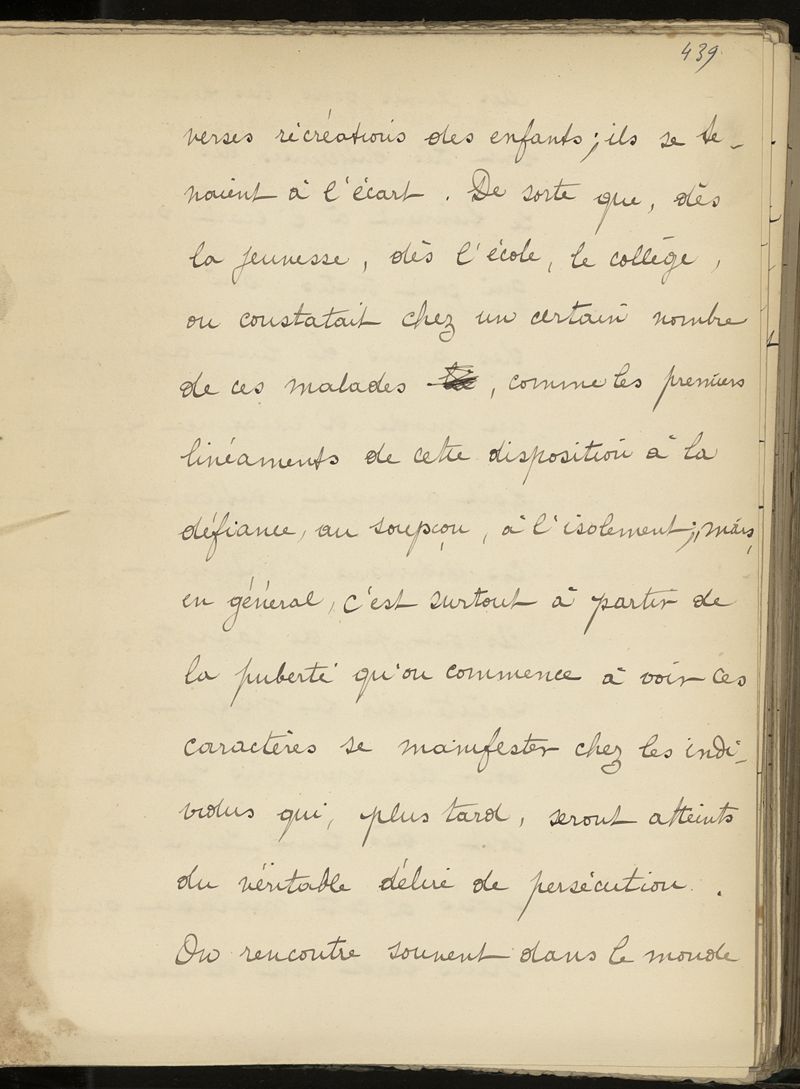 439.
verses récréations des enfants; ils se te-
naient à l'écart. De sorte que, dès
la jeunesse, dès l'école, le collège,
on constatait chez un certain nombre
de ces malades, comme les premiers
linéaments de cette disposition à la
défiance, au soupçon, à l'isolement; mais,
en général, c'est surtout à partir de
la puberté qu'on commence à voir ces
caractères se manifester chez les indi-
vidus qui, plus tard, seront atteints
du véritable délire de persécution.
On rencontre souvent dans le monde